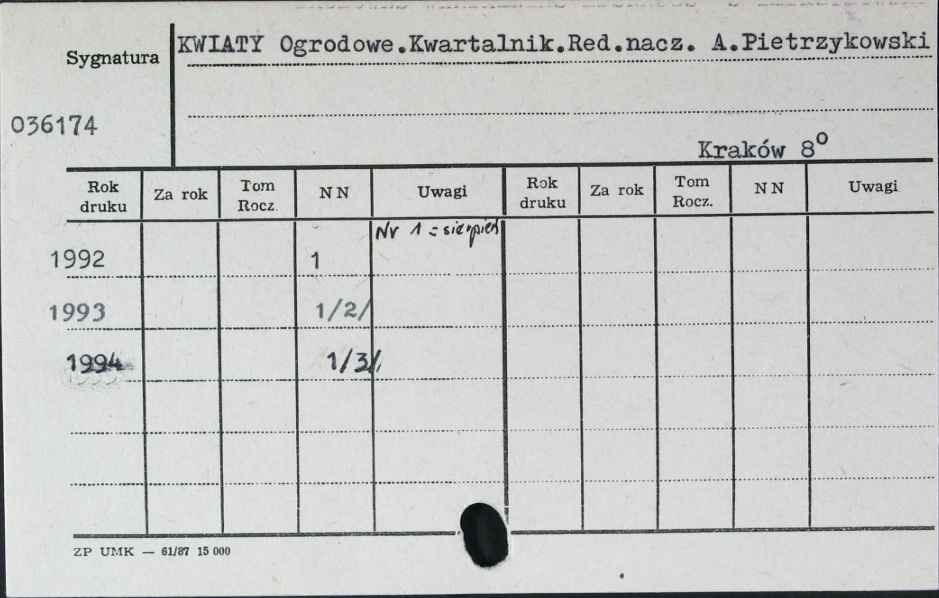 Sygnatura
KWIATY Ogrodowe.Kwartalnik.Red.nacz. A.Pietrzykowski
036174
Kraków 8°
Rok druku Za rok Tom Rocz. NN Uwagi Rok druku Za rok Tom Rocz. NN Uwagi
Nr 1 = sierpień
1992 1
1993 1/2/
1994 1/3/
ZP UMK — 61/87 15 000